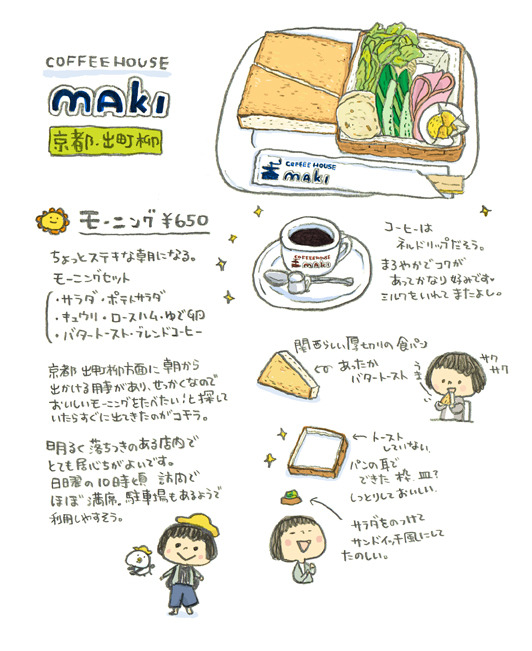 COFFEE HOUSE
maki
京都・出町柳
COFFEE HOUSE
maki
モーニング ¥650
ちょっとステキな朝になる。
モーニングセット
・サラダ・ポテトサラダ
・キュウリ・ロースハム・ゆで卵
・バタートースト・ブレンドコーヒー
京都 出町柳方面に朝から
出かける用事があり、せっかくなので
おいしいモーニングをたべたい!と探して
いたらすぐに出てきたのがコチラ。
明るく落ちつきのある店内で
とても居心ちがよいです。
日曜の10時頃 訪問で
ほぼ満席。駐車場もあるようで
利用しやすそう。
COFFEEHOUSE
maki
コーヒーは
ネルドリップだそう。
まろやかでコクが
あってかなり好みです♥
ミルクをいれてまたよし。
関西らしい厚切りの食パン
あったか
バタートースト
うまっ
サク
サク
トースト
していない
パンの耳で
できた枠。皿?
しっとりしておいしい。
サラダをのっけて
サンドイッチ風にして
たのしい。